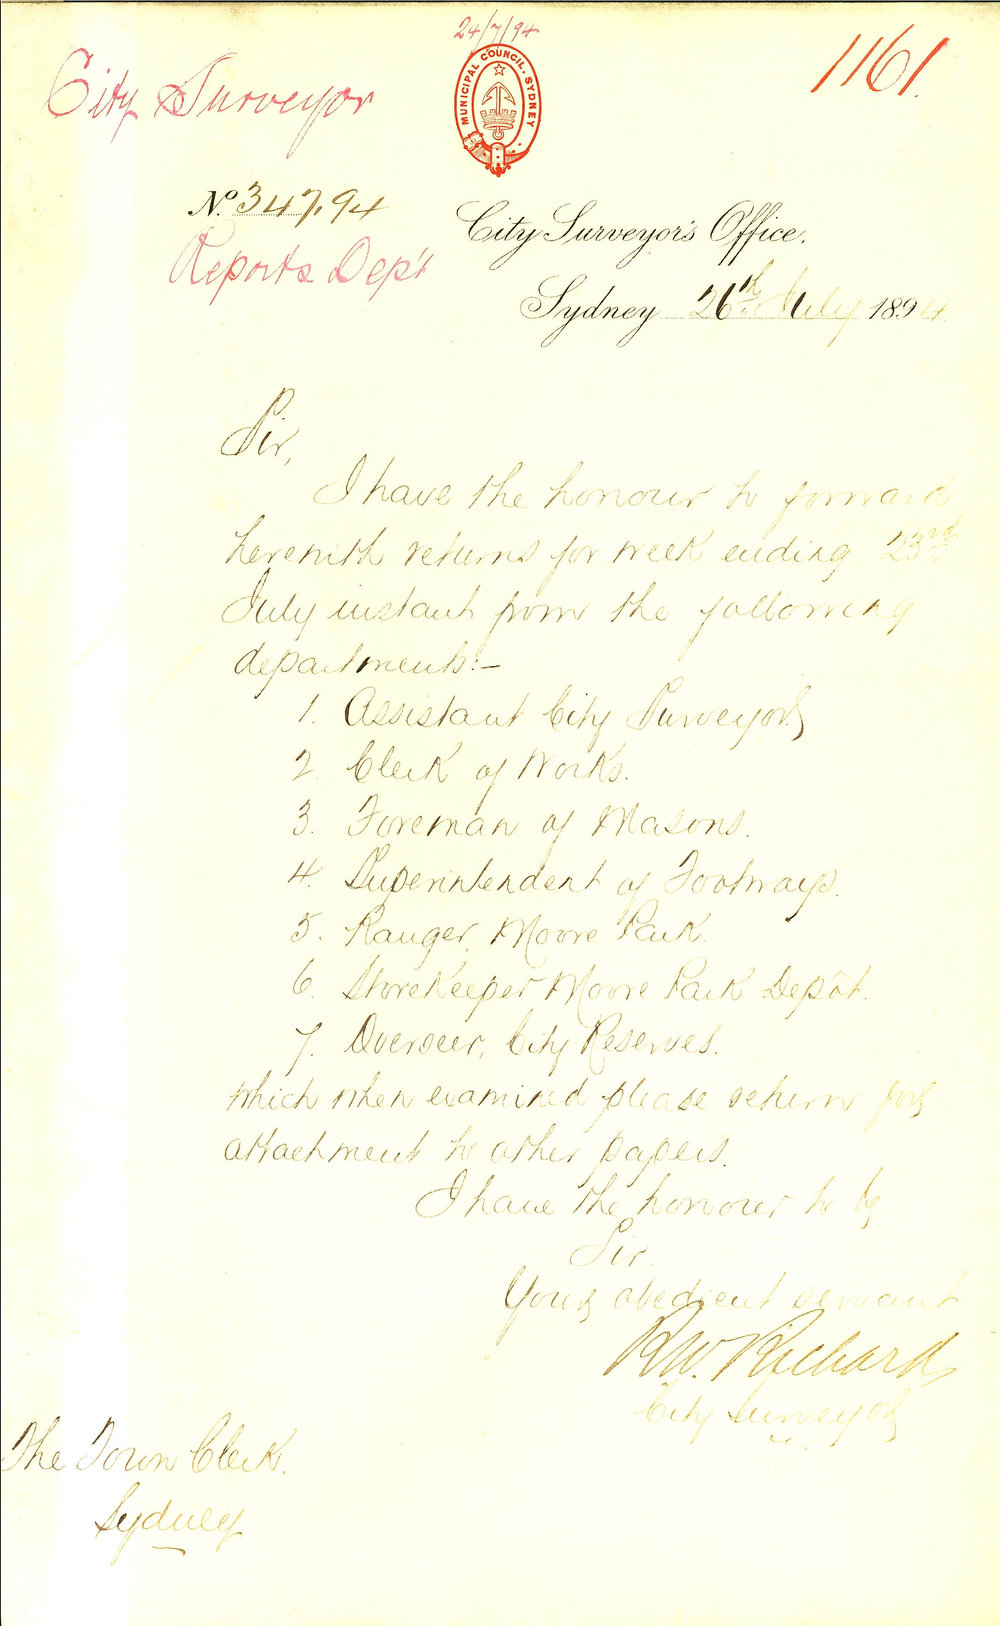 24/7/94
City Surveyor
1161.
MUNICIPAL COUNCIL. SYDNEY
No. 347.94
City Surveyor's Office.
Reports Dep't
Sydney 26th July 1894.
Sir,
I have the honour to forward
herewith returns for week ending 23rd
July instant from the following
departments:-
1. Assistant City Surveyor
2. Clerk of Works.
3. Foreman of Masons.
4. Superintendent of Footways.
5. Ranger, Moore Park.
6. Storekeeper Moore Park Depôt.
7. Overseer, City Reserves.
which when examined please return for
attachment to other papers.
I have the honour to be
Sir.
Your obedient servant
R.W. Richards
City Surveyor
The Town Clerk.
Sydney